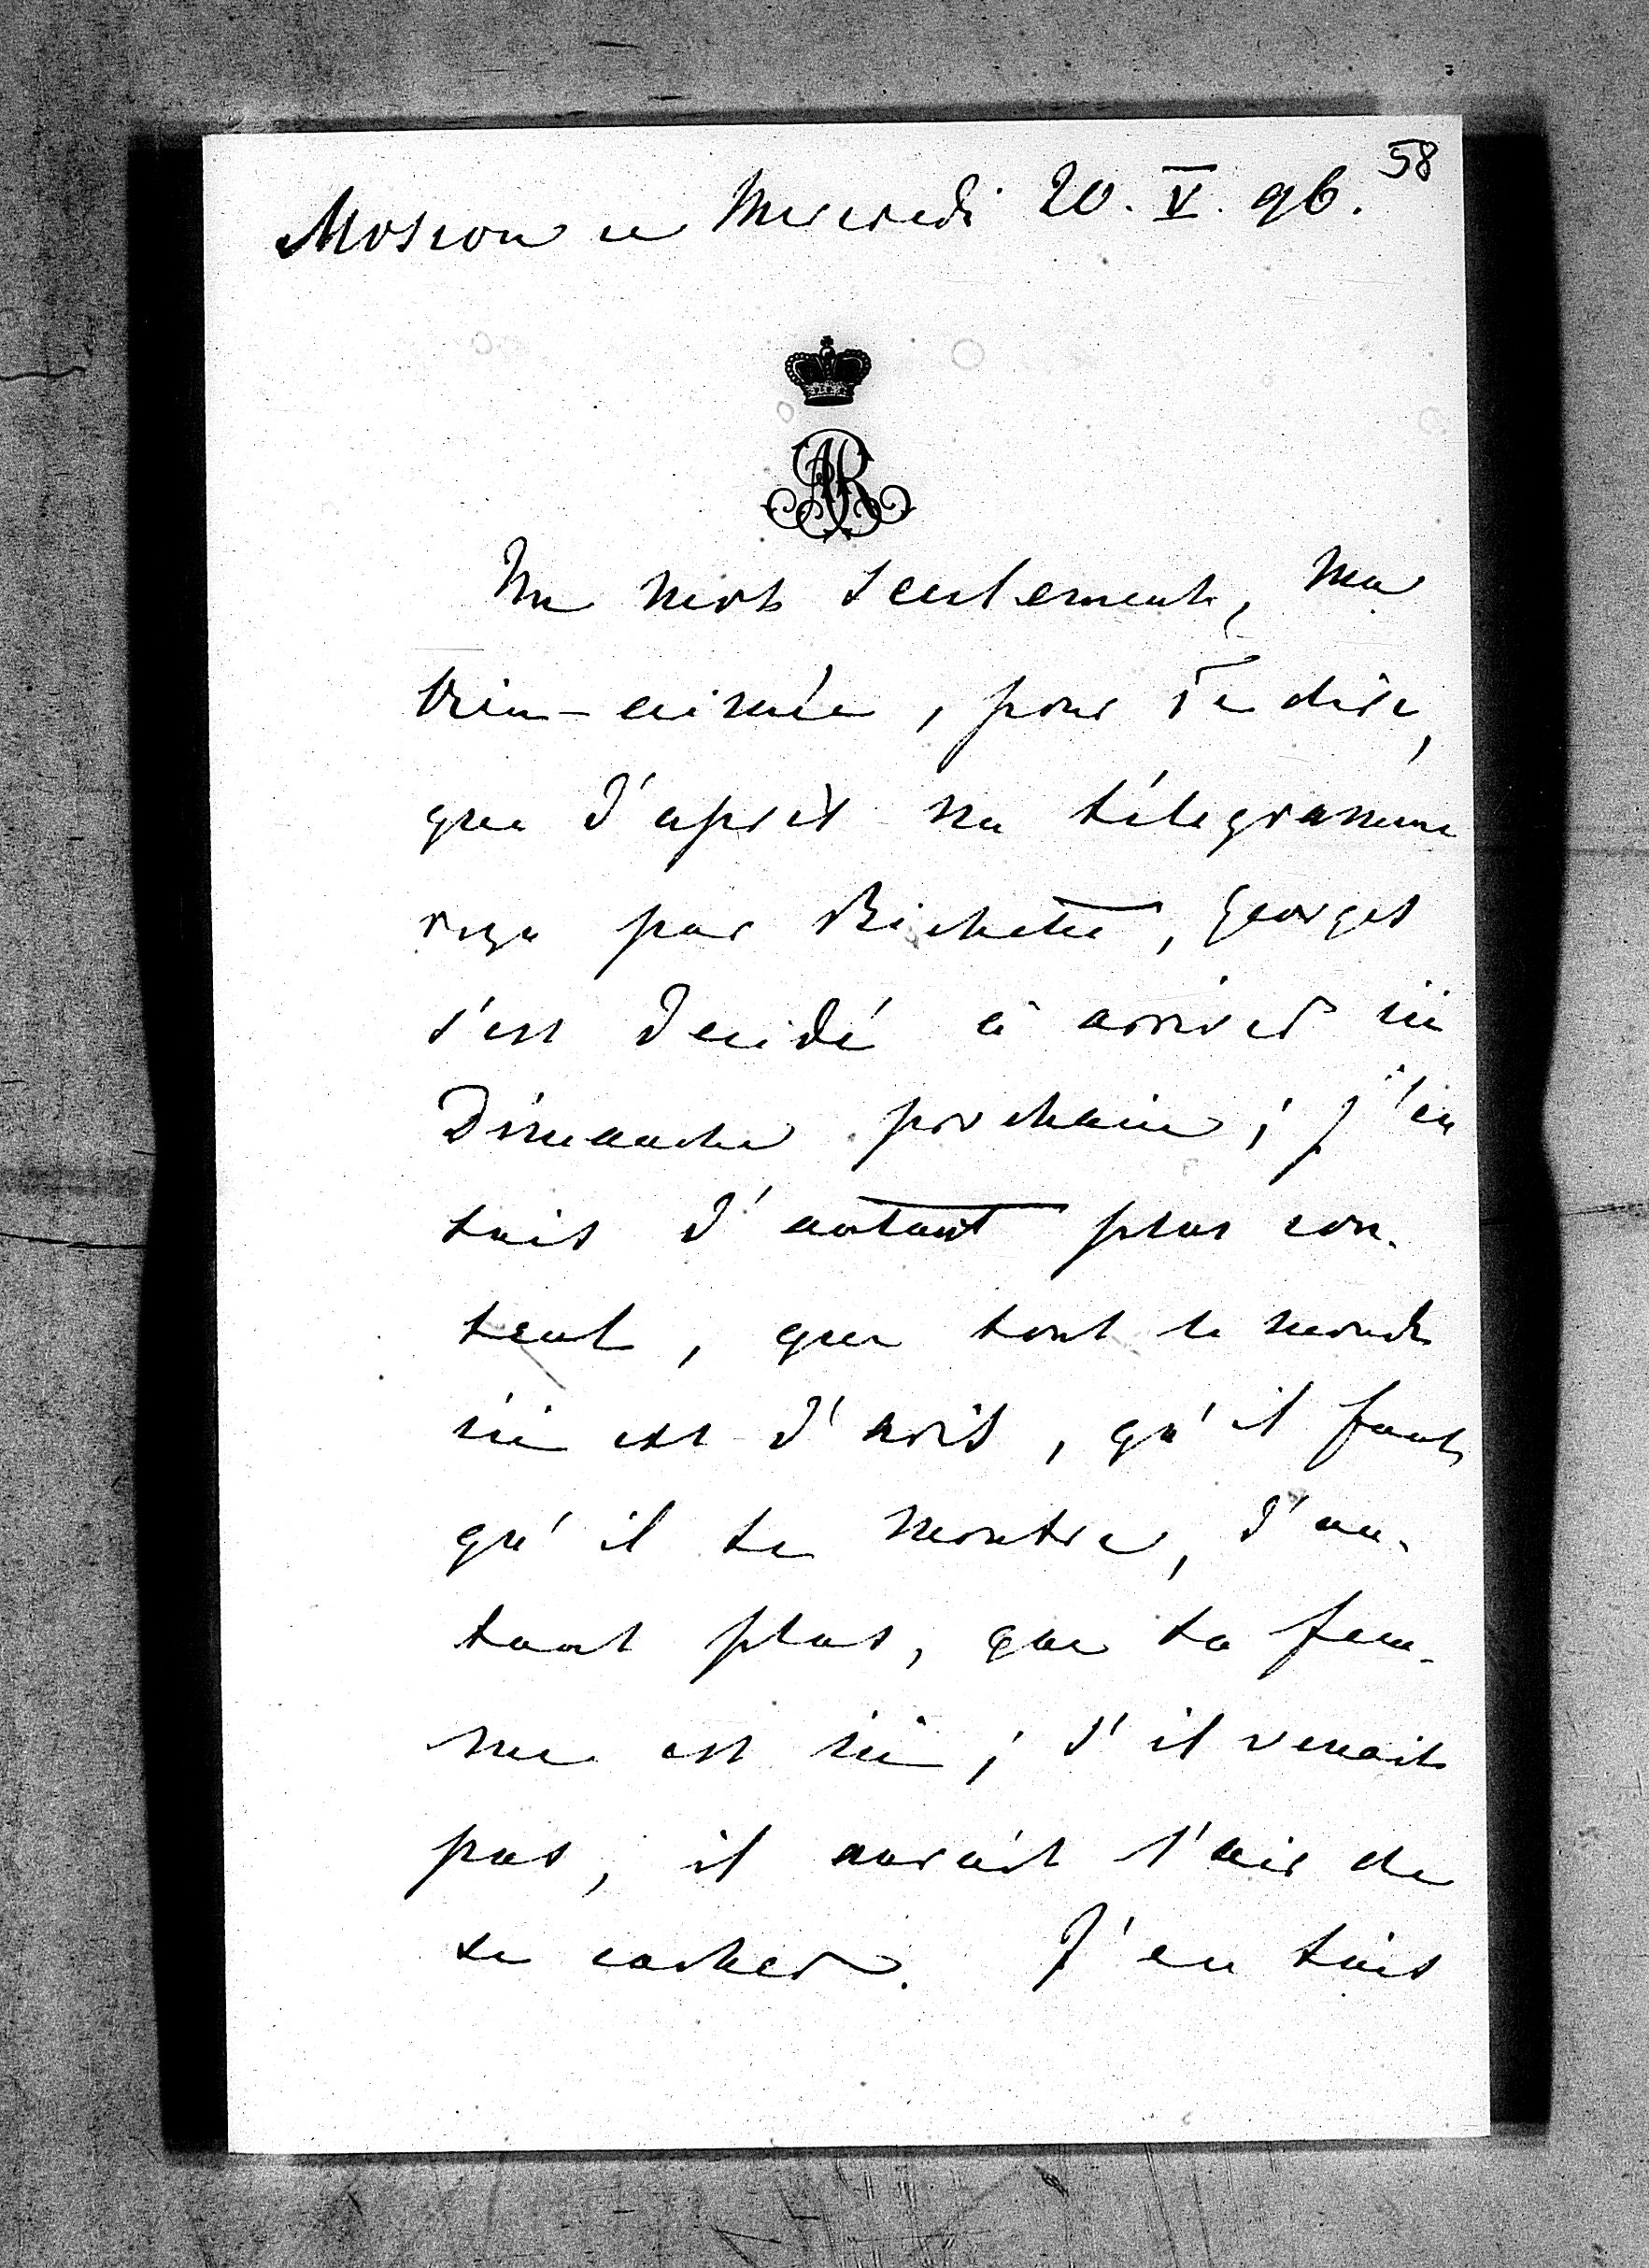 58
Moscou ce Mercredi 20. V. 96.
AR
Un mot seulement, ma
bien-aimée, pour te dire,
que d'après un télégramme
reçu par Bichette, Georges
s'est decidé à arriver ici
Dimanche prochain; j'en
suis d'autant plus con-
tent, que tout le monde
ici est d'avis, qu'il faut
qu'il se montre, d'au-
tant plus, que sa fem-
me est ici; s'il venait
pas, il aurait l'air de
se cacher. J'en suis